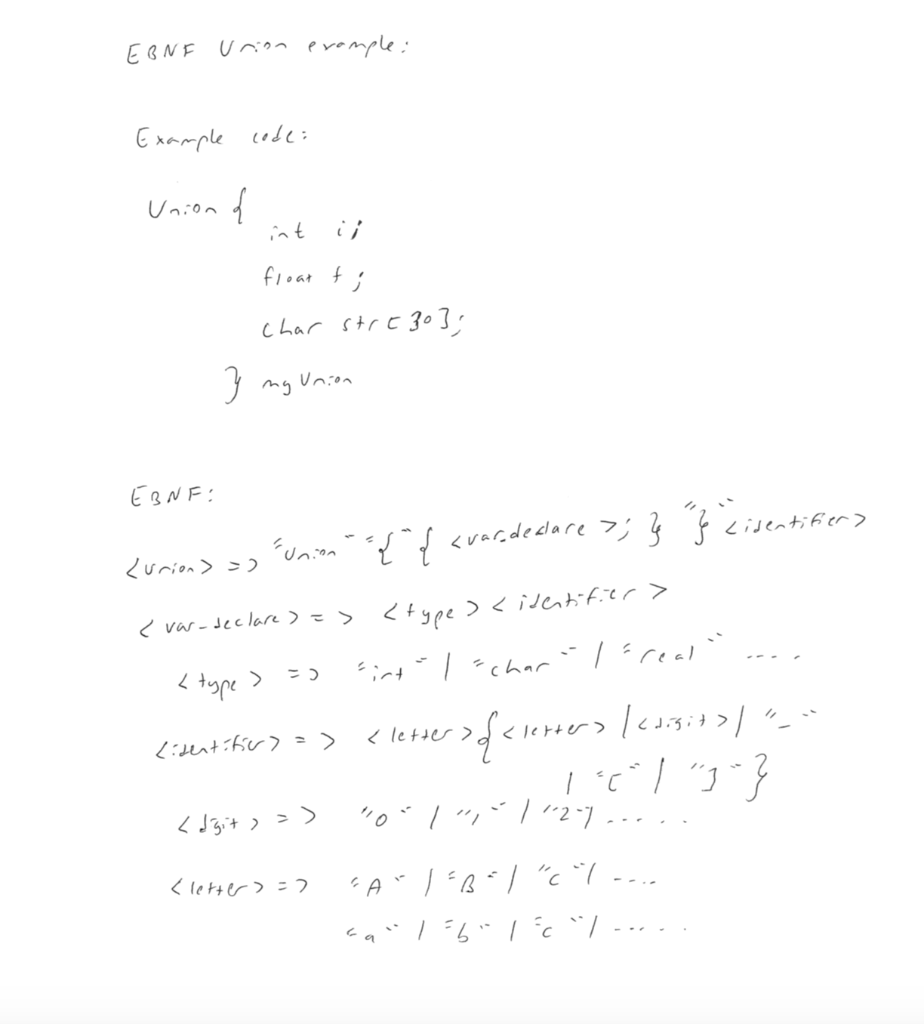 EBNF Union example:
Example code:
Union {
int i;
float f;
char str[30];
} myUnion
EBNF:
<union> => "union" "{" { <var-declare>; } "}" <identifier>
<var-declare> => <type> <identifier>
<type> => "int" | "char" | "real" ....
<identifier> => <letter> { <letter> | <digit> | "_"
| "[" | "]" }
<digit> => "0" | "1" | "2" | ......
<letter> => "A" | "B" | "C" | ....
"a" | "b" | "c" | .....